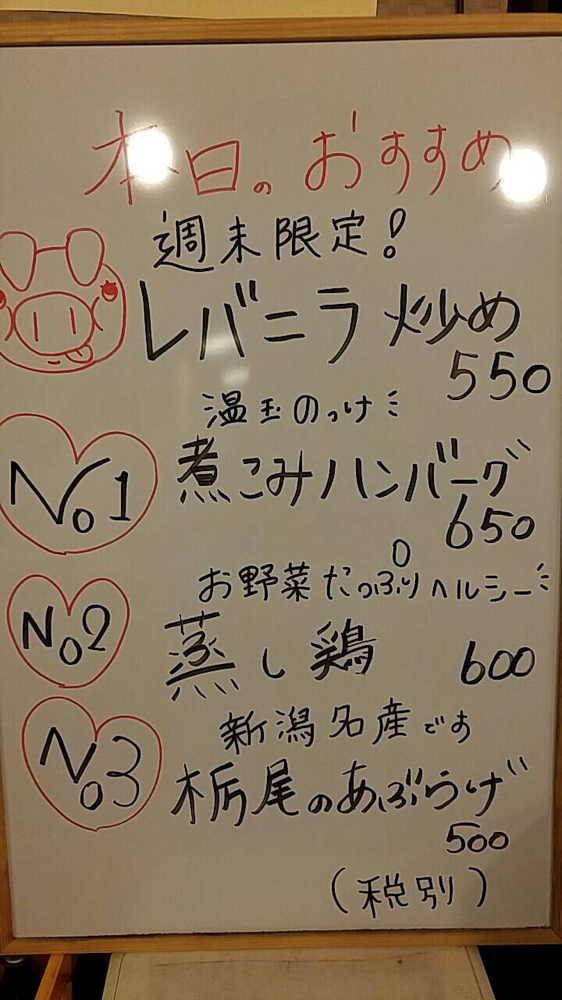 本日のおすすめ
週末限定!
レバニラ炒め
550
温玉のっけ
No1
煮こみハンバーグ
650
お野菜たっぷりヘルシー
No2
蒸し鶏 600
新潟名産です
No3
栃尾のあぶらげ
500
(税別)